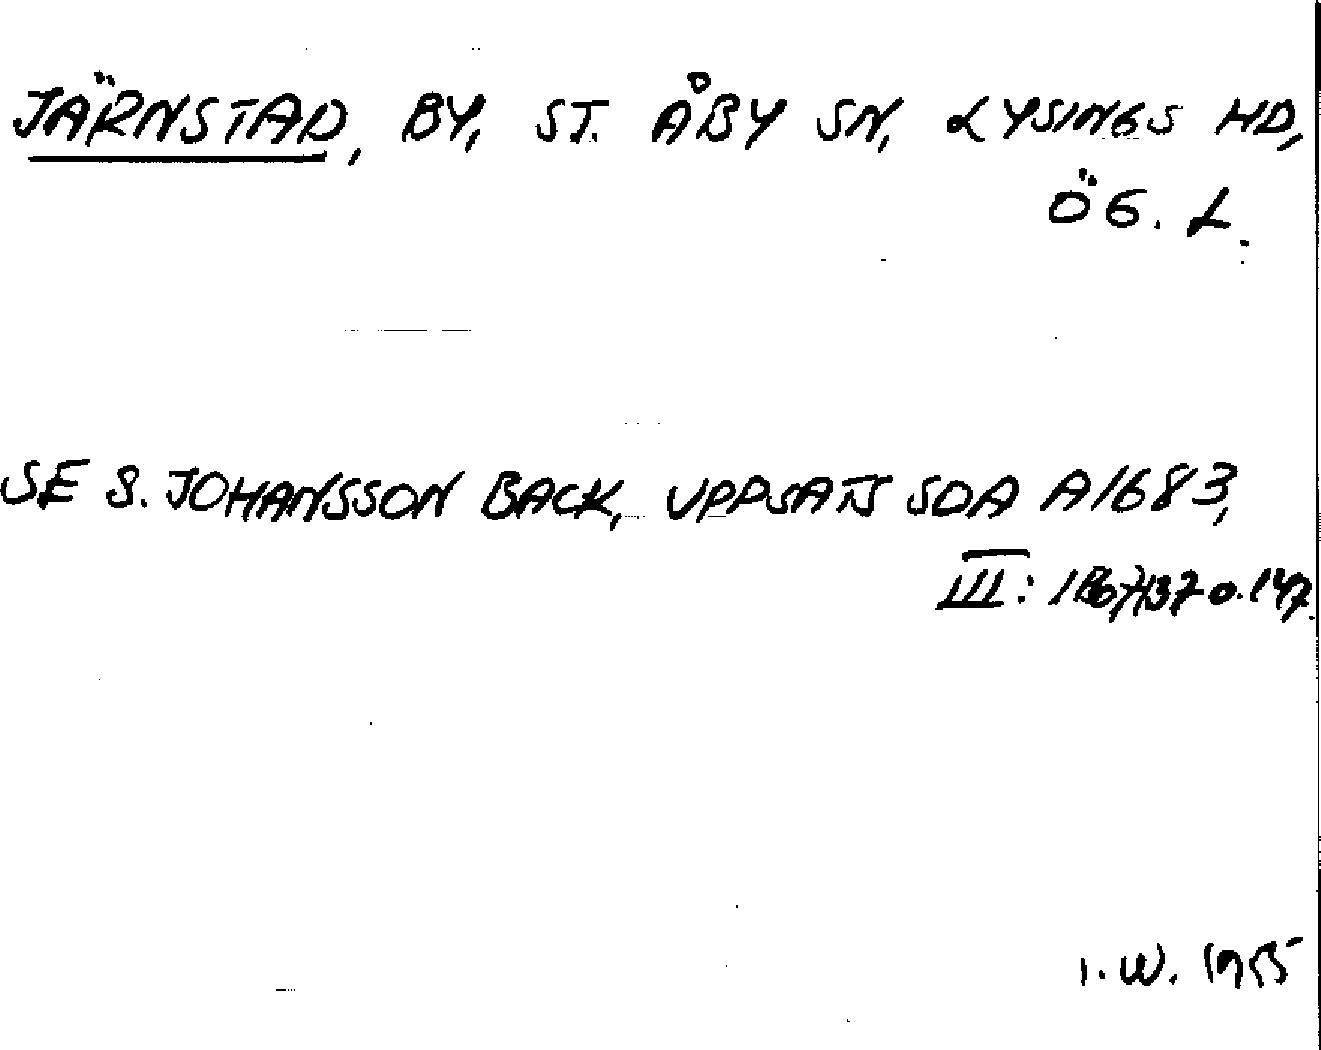 JÄRNSTAD, BY, ST. ÅBY SN, LYSINGS HD,
ÖG. L.
SE S. JOHANSSON BACK, UPPSATS SOA A1683,
III: o. 147.
I. W. 1955